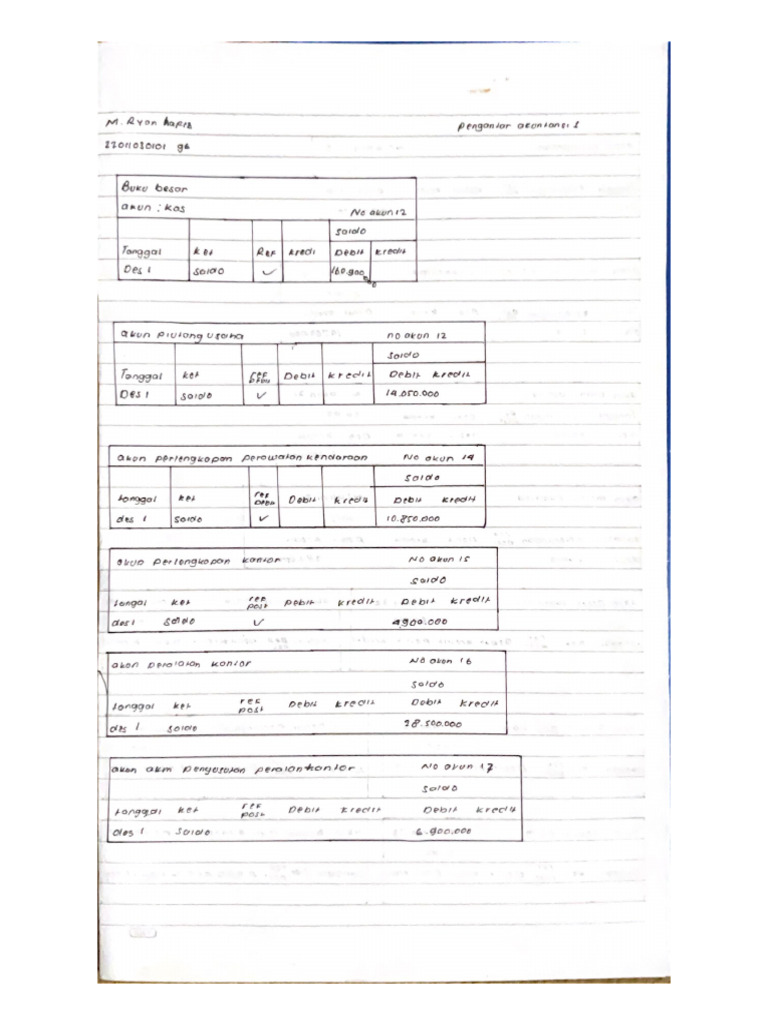 M. Ryan hafis Pengantar akuntansi 1
22011030101 9b
Buku besar
akun : kas No akun 12
Saldo
Tanggal ket Ref kredi Debit kredit
Des 1 saldo ✓ 160.900.000
akun piutang usaha no akun 12
saldo
Tanggal ket ref Debit kredit Debit kredit
Des 1 saldo ✓ 14.050.000
akun perlengkapan perawatan kendaraan No akun 14
saldo
tanggal ket ref Debit kredit Debit kredit
des 1 saldo ✓ 10.850.000
akun perlengkapan kantor No akun 15
saldo
tangal ket ref post Debit kredit Debit kredit
des 1 saldo ✓ 4900.000
akun peralatan kantor No akun 16
saldo
tanggal ket ref post Debit kredit Debit kredit
des 1 saldo 28.500.000
akun akm penyusutan peralan kantor No akun 17
saldo
tanggal ket ref post Debit kredit Debit kredit
des 1 saldo 6.900.000